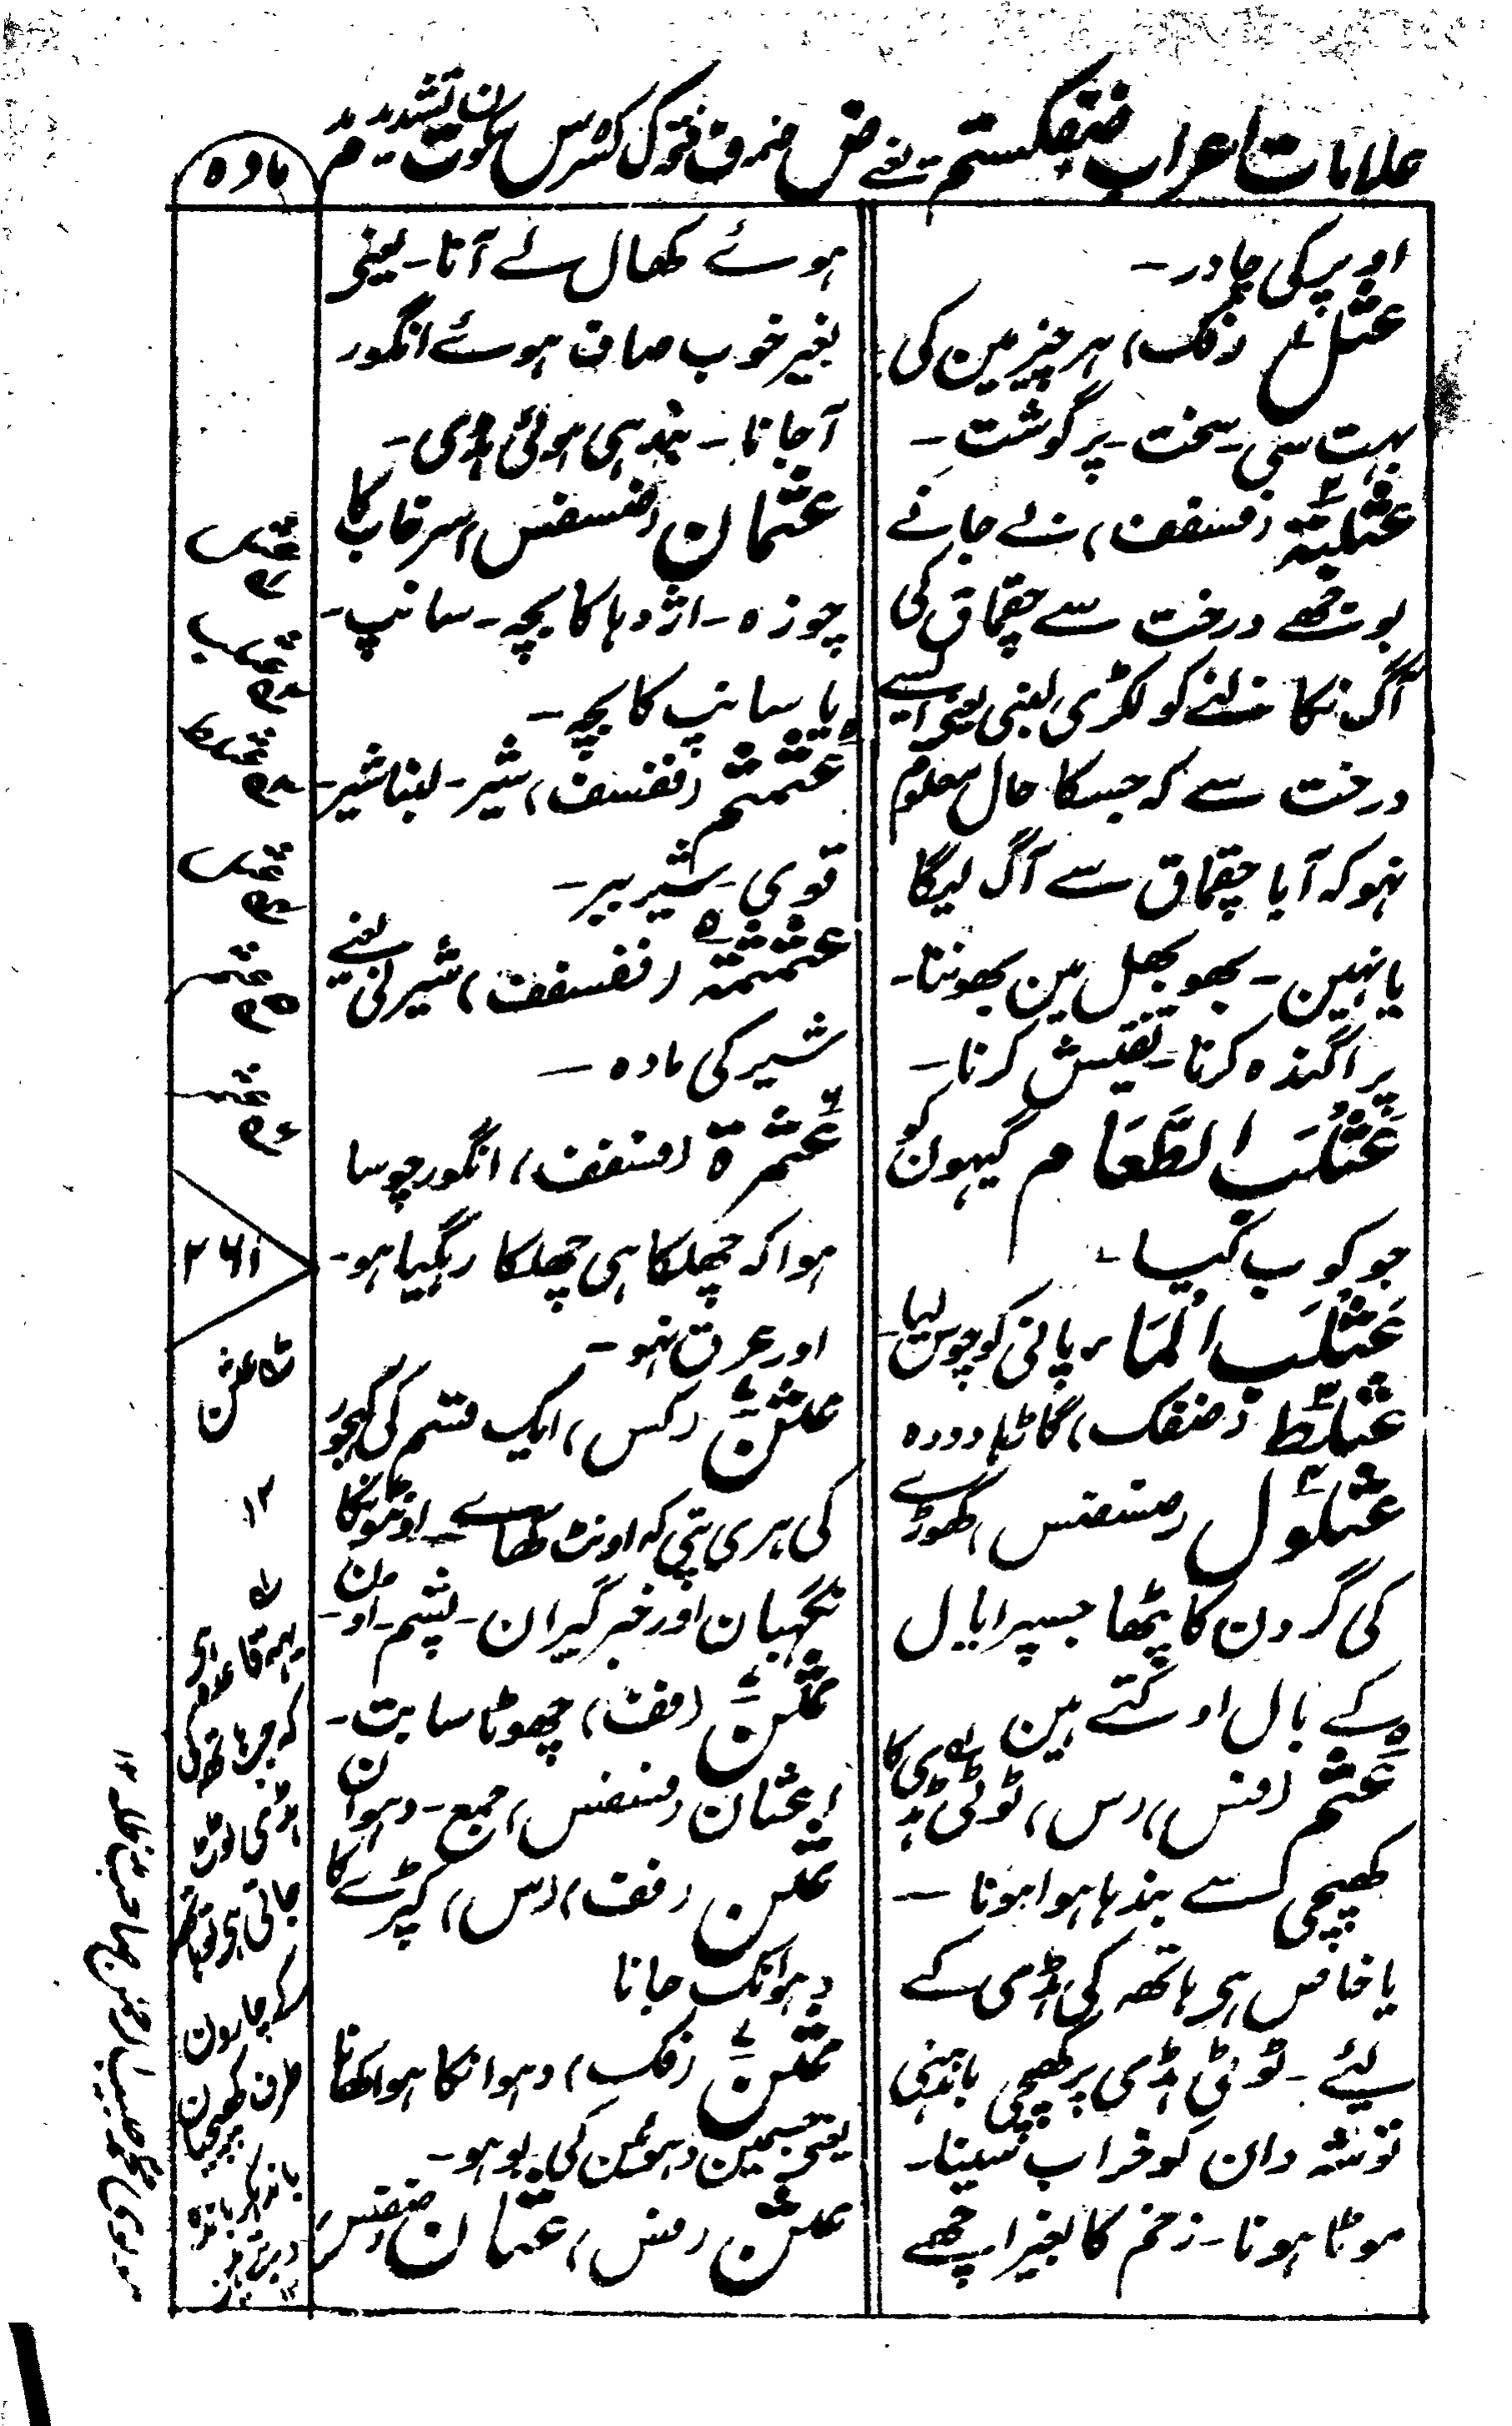 علامات اعراب ضفکستم ۔ یعنے ض ضمہ ف فتح ک کسر س سکون ت تشدید م مد
مادہ
اوپر کی چادر ۔
عثل (فک) ہر چیز مین کی
بہت سی ۔ سخت ۔ پر گوشت ۔
عثلبۃ (فسفف) بے جانے
بوجھے درخت سے چقماق کی
آگ نکالنے کو لکڑی لینی یعنی ایسے
درخت سے کہ جسکا حال معلوم
نہو کہ آیا چقماق سے آگ لیگا
یا نہین ۔ بھوبھل مین بھوننا ۔
پراگندہ کرنا ۔ تفتیش کرنا ۔
عَثْلَبَ الطَّعَام گیہون کو
جوکوب کیا ۔
عَثْلَبَ الْمَاء پانی کو چوس لیا ۔
عثلط (ضفک) گاڑھا دودہ
عثلول (ضسضس) گھوڑے
کی گردن کا پٹھا جسپر ایال
کے بال اوگتے ہین
عثم (فس) (س) ٹوٹی ہڈی کا
کھپچی سے بندہا ہوا ہونا ۔
یا خاص ہی ہاتھہ کی ہڈی کے
لیئے ۔ ٹوٹی ہڈی پر کھپچی باندہنی
توشہ دان کو خراب سینا ۔
موٹا ہونا ۔ زخم کا بغیر اچھے
ہوئے کھال لے آنا ۔ یعنی
بغیر خوب صاف ہوئے انگور
آجانا ۔ بندہی ہوئی ہڈی ۔
عثمان (ضسفس) سرخاب کا
چوزہ ۔ اژدہا کا بچہ ۔ سانپ ۔
یا سانپ کا بچہ ۔
عثمثم (ففسف) شیر ۔ لبنا شیر ۔
قوی ۔ شیر ببر ۔
عثمثمۃ (ففسفف) شیرنی یعنے
شیر کی مادہ ۔
عثمرۃ (فسفف) انگور چوسا
ہوا کہ چھلکا ہی چھلکا رہگیا ہو ۔
اور عرق نہو ۔
عثن (کس) ایک قسم کی کھجور
کی ہری پتی کہ اونٹ کھاے ۔ اونٹونکا
نگہبان اور خبر گیران ۔ پشم ۔ اون
عثن (فف) چھوٹا سا بت ۔
اعثان (فسفس) جمع ۔ دہوان
عثن (فف) (س) کپڑے کا
دہوانک جانا
عثن (فک) دہوانکا ہوا کھانا
یعنے جسمین دہوئین کی بو ہو ۔
عثن (فس) عثان (ضفس)
عثلب
عثلب
عثلط
عثلل
عثم
عثمر
۲۶۱
عثن
۱۲
یہہ قاعدہ ہی
کہ جب ہاتھہ کی
ہڈی ٹوٹ
جاتی ہی تو ہاتھہ
کے چارون
طرف کھپچیان
باندہکر